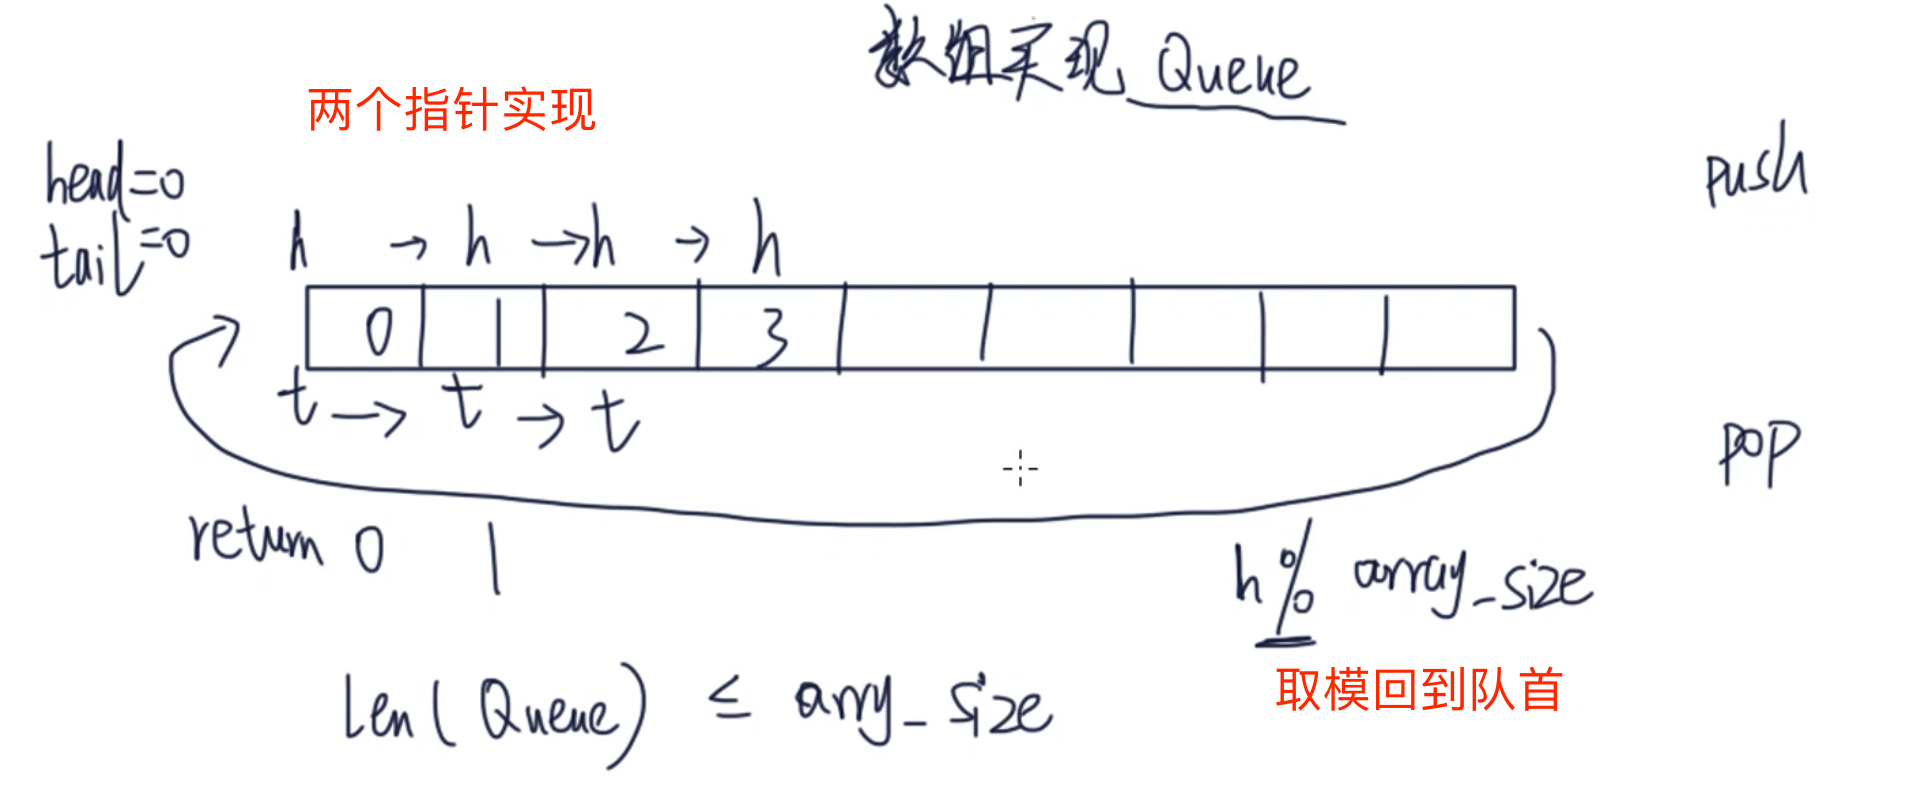 数组实现 Queue
两个指针实现
head=0
tail=0
push
h → h → h → h
0 1 2 3
t → t → t
pop
return 0 1
h % array_size
取模回到队首
len(Queue) ≤ arry_size